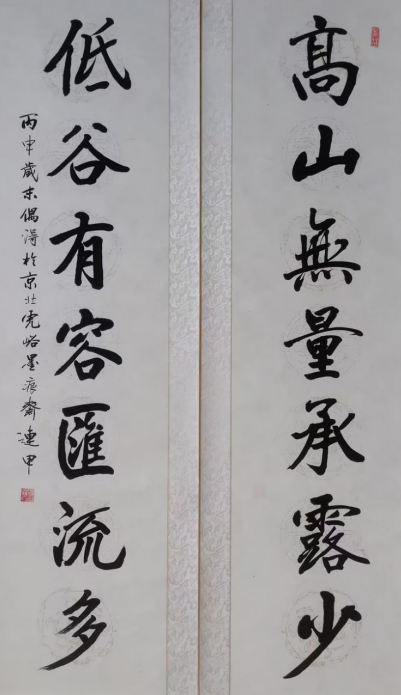 高山無量承露少
低谷有容匯流多
丙申歲末偶得於京北虎峪墨痕齋連甲